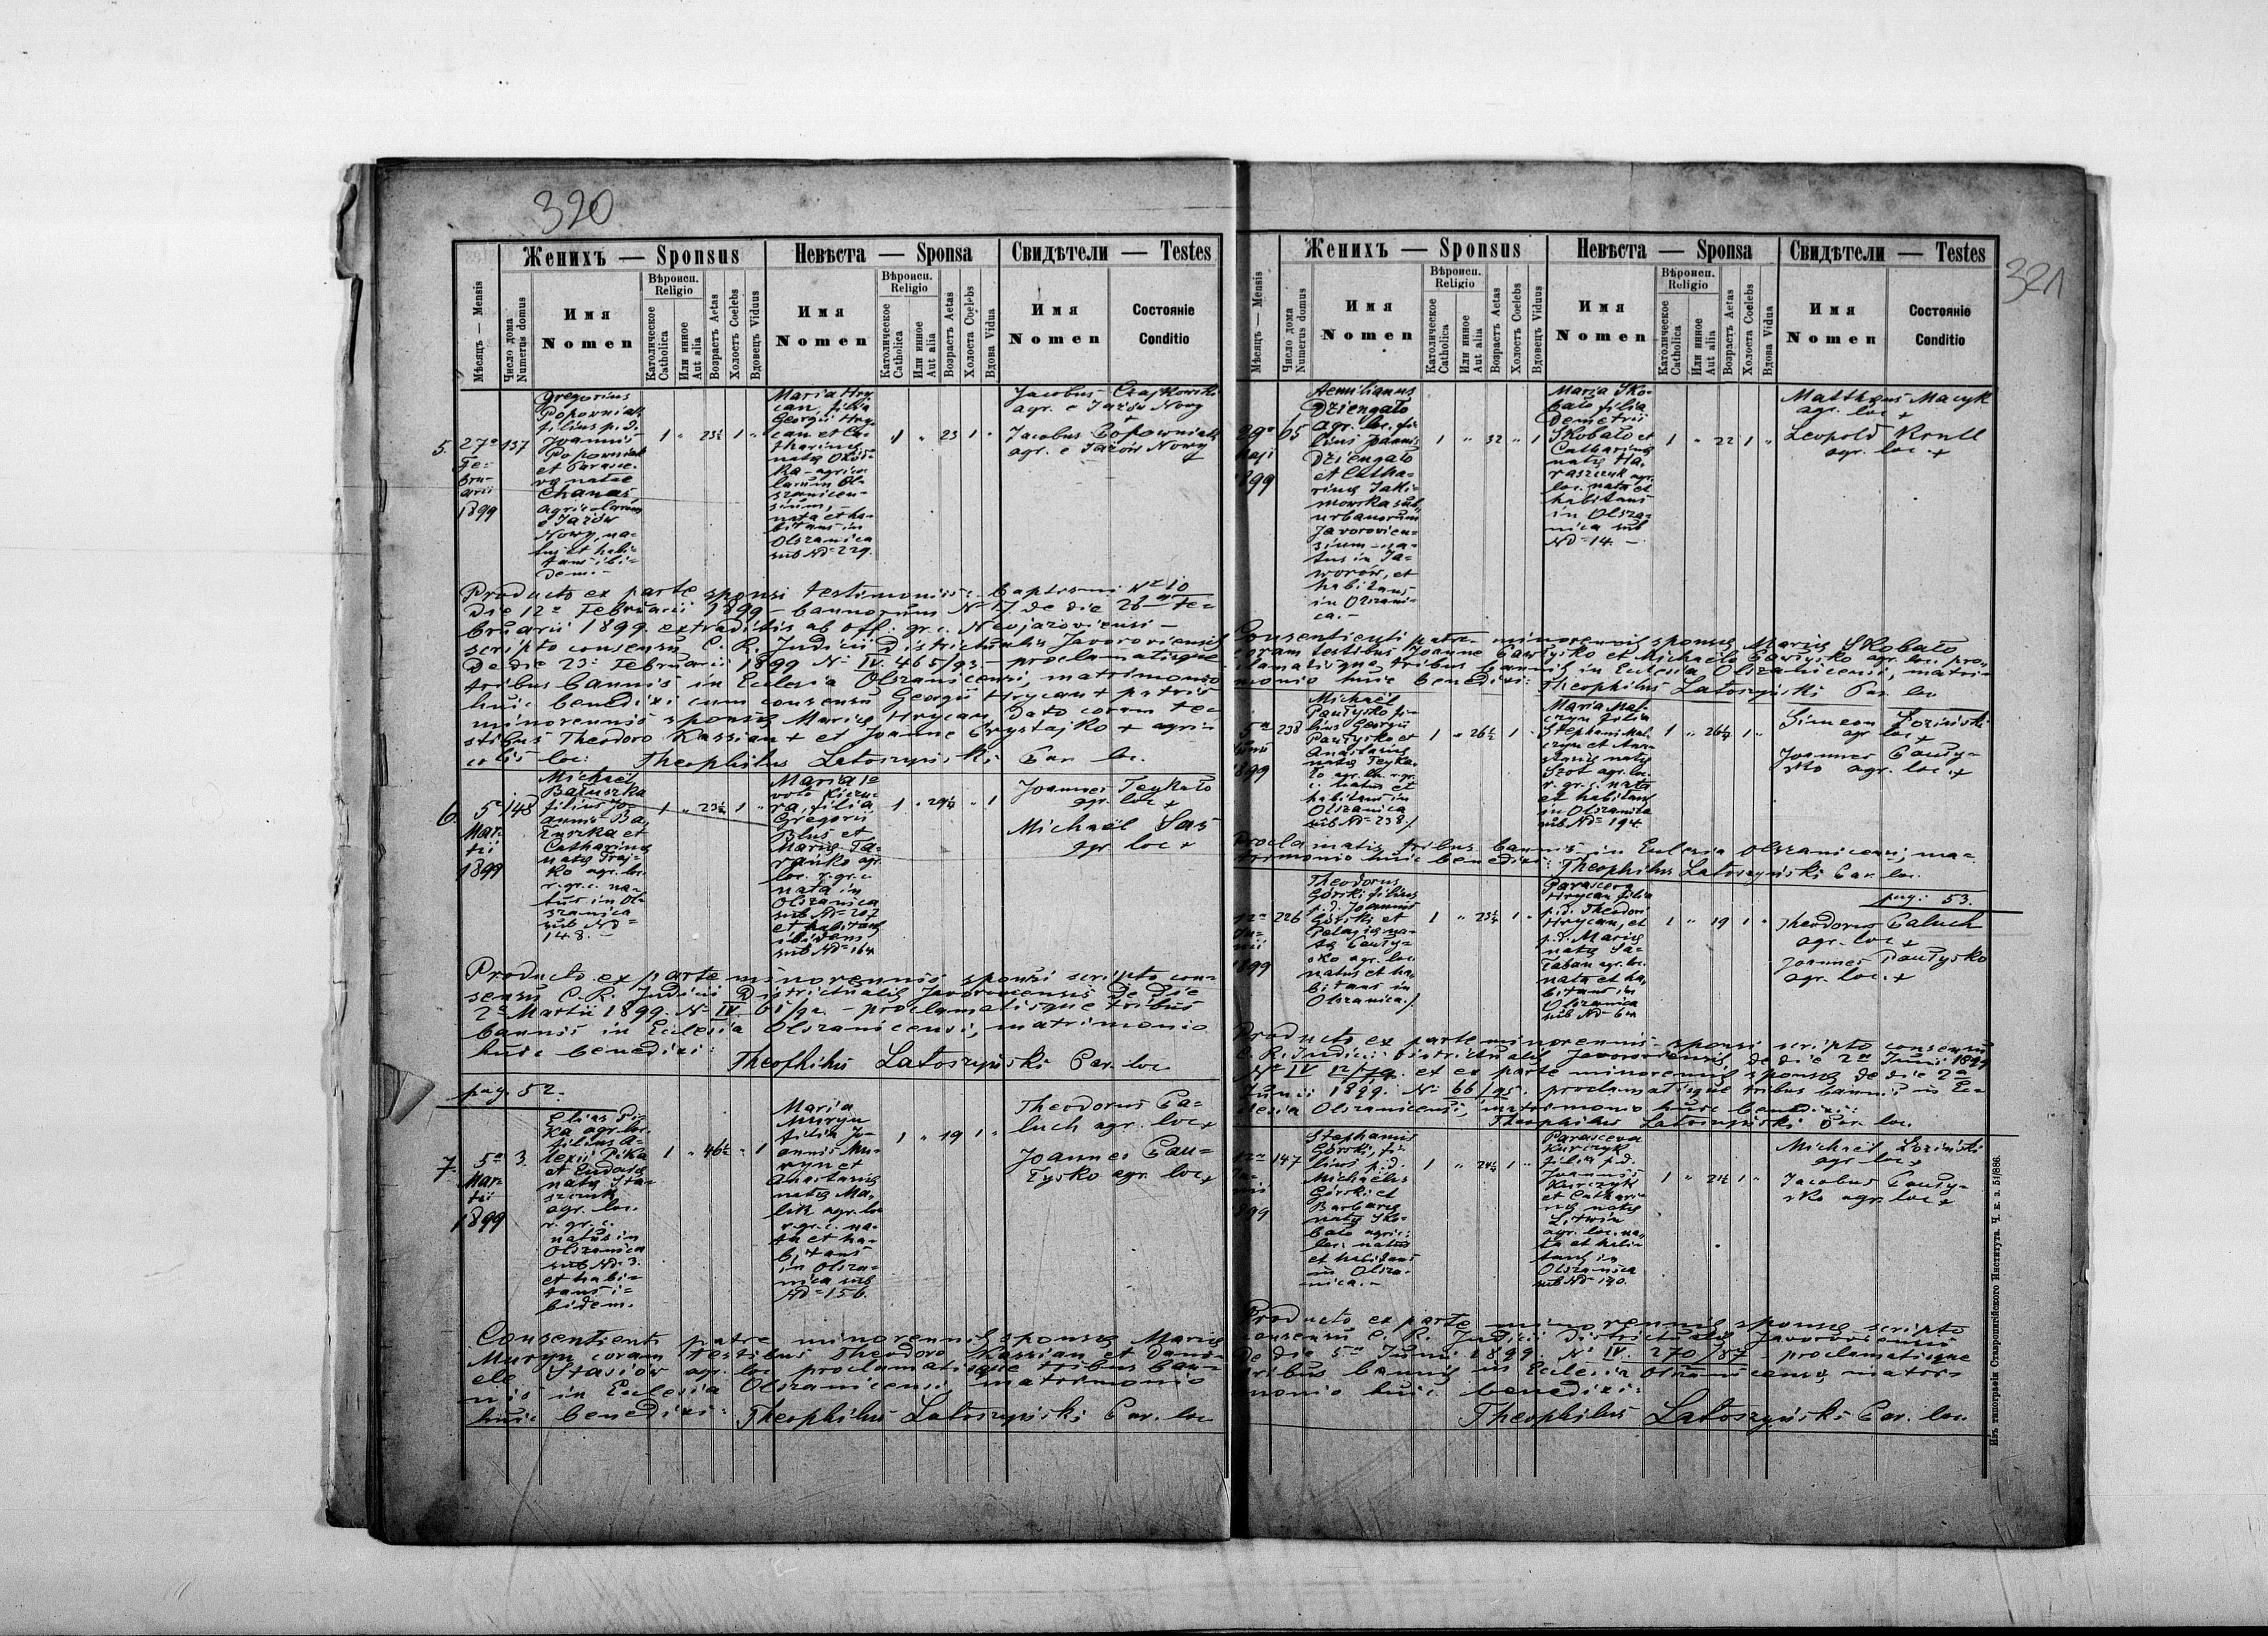 320
Женихъ — Sponsus
Невѣста — Sponsa
Свидѣтели — Testes
Мѣсяцъ — Mensis
Число дома
Numerus domus
Имя
Nomen
Вѣроисп.
Religio
Католическое
Catholica
Или инное
Aut alia
Возрастъ Aetas
Холостъ Coelebs
Вдовецъ Viduus
Имя
Nomen
Вѣроисп.
Religio
Католическое
Catholica
Или инное
Aut alia
Возрастъ Aetas
Холоста Coelebs
Вдова Vidua
Имя
Nomen
Состояніе
Conditio
5.
27a
Fe-
bru-
arii
1899
137
Gregorius
Popowniak
filius p. d.
Joannis
Popowniak
et Parasce-
va natae
Chanas,
agricolarum
e Jazów
Nowy, na-
tus et habi-
tans ibi-
dem.-
1 " 23½ 1 "
Maria Hry-
can, filia
Georgii Hry-
can et Ca-
tharinae
natae
ka - agrico-
larum Ol-
szanicen-
sium, -
nata et ha-
bitans in
Olszanica
sub No 229.
1 " 23 1 "
Jacobus Czajkowski
agr. e Jazów Nowy
+
Jacobus Popowniak
agr. e Jazów Nowy
+
Producto ex parte sponsi testimoniis: baptismi No 10
die 12a Februarii 1899 - bannorum No 17. de die 26a Fe-
bruarii 1899. extraditis ab off: gr. c. Neojazoviensi -
scripto consensu C. R. Judicii Districtualis Javoroviensis
de die 23a Februarii 1899 No IV. 465/93 - proclamatisque
tribus bannis in Eclesia Olszanicensi, matrimonio
huic benedixi cum consensu Georgii Hrycan + patris
minorennis sponsae Mariae Hrycan, dato coram te-
stibus Theodoro Kassian + et Joanne Chrystajko + agri-
colis loc: Theophilus Latoszyński Par. loc.
6.
5a
Mar-
tii
1899
148
Michaël
Batuszka
filius Jo-
annis Ba-
tuszka et
Catharinae
natae Traj-
ko agr. loc.
r. gr. c. na-
tus in Ol-
szanica
sub No
148. -
1 " 23½ 1 "
Maria 1o
voto Kiczu-
ra, filia
Gregorii
Blus et
Mariae Ta-
ranko agr.
loc. r. gr. c.
nata in
Olszanica
sub No 207
et habitans
ibidem
sub No 164
1 " 29½ " 1
Joannes Teykało
agr. loc +
Michaël Sas
agr. loc +
Producto ex parte minorennis sponsi scripto con-
sensu C. R. Judicii Districtualis Javoroviensis de die
2a Martii 1899. No IV. 61/92. - proclamatisque tribus
bannis in Eclesia Olszanicensi, matrimonio
huic benedixi:
Theophilus Latoszyński Par. loc.
pag. 52.
7.
5a
Mar-
tii
1899
3.
Elias Pi-
ka agr. loc.
filius A-
lexii Pika
et Eudoxiae
natae Sta-
szczuk
agr. loc.
r. gr. c.
natus in
Olszanica
sub No 3.
et habi-
tans i-
bidem.
1 " 46½ " 1
Maria
Muryn
filia Jo-
annis Mu-
ryn et
Anastasiae
natae Ma-
lik agr. loc
r. gr. c. na-
ta et ha-
bitans
in Olsza-
nica sub
No 156.
1 " 19 1 "
Theodorus Ca-
luch agr. loc +
Joannes Pau-
tysko agr. loc. +
Consentienti patre minorennis sponsae Mariae
Muryn coram testibus Theodoro Kassian et Dani-
ele Stasiów agr. loc proclamatisque tribus ban-
nis in Eclesia Olszanicensi, matrimonio
huic benedixi: Theophilus Latoszyński Par. loc
321
Женихъ — Sponsus
Невѣста — Sponsa
Свидѣтели — Testes
Мѣсяцъ — Mensis
Число дома
Numerus domus
Имя
Nomen
Вѣроисп.
Religio
Католическое
Catholica
Или инное
Aut alia
Возрастъ Aetas
Холостъ Coelebs
Вдовецъ Viduus
Имя
Nomen
Вѣроисп.
Religio
Католическое
Catholica
Или инное
Aut alia
Возрастъ Aetas
Холоста Coelebs
Вдова Vidua
Имя
Nomen
Состояніе
Conditio
29a
Maji
1899
65
Aemilianus
Dziengało
agr. loc. fi-
lius Joannis
Dziengało
et Catha-
rinae Jaki-
mowska sub-
urbanorum
Javorovien-
sium - na-
tus in Ja-
worów, et
habitans
in Olszani-
ca. -
1 " 32 " 1
Maria Sko-
bało filia
Demetrii
Skobało et
Catharinae
natae Ha-
raszczuk agr.
loc. nata et
habitans
in Olsza-
nica sub
No 14. -
1 " 22 1 "
Matthaeus Macyk
agr. loc
+
Leopold Krull
agr. loc +
Consentienti patre minorennis sponsae Mariae Skobało
coram testibus Joanne Pautysko et Michaële Pautysko agr. loc. pro-
clamatisque tribus bannis in Eclesia Olszanicensi, matri-
monio huic benedixi: Theophilus Latoszyński Par. loc
5a
Junii
1899
238
Michaël
Pautysko fi-
lius Georgii
Pautysko et
Anastasiae
natae Teyka-
ło agr. loc. r. gr.
c. natus et
habitans in
Olszanica
sub No 238./
1 " 26½ 1 "
Maria Mal-
czyn filia
Stephani Mal-
czyn et Ana-
stasiae natae
Szot agr. loc.
r. gr. c. nata
et habitans
in Olszanica
sub No 194.
1 " 26¼ 1 "
Simeon Łoziński
agr loc +
Joannes Pauty-
sko agr. loc. +
Proclamatis tribus bannis in Eclesia Olszanicensi, ma-
trimonio huic benedixi: Theophilus Latoszyński Par. loc.
pag: 53.
12a
Ju-
nii
1899
226
Theodorus
Górski filius
p. d. Joannis
Górski et
Pelagiae na-
tae Pauty-
sko agr. loc.
natus et ha-
bitans in
Olszanica./
1 " 23¼ 1 "
Parasceva
Hrycan filia
p. d. Theodori
Hrycan, et
p. d. Mariae
natae Ła-
taban agr. loc.
nata et ha-
bitans in
Olszanica
sub No 64
1 " 19 1 "
Theodorus Caluch
agr. loc +
Joannes Pautysko
agr. loc. +
Producto ex parte minorennis sponsi scripto consensu
C. R. Judicii Districtualis Javoroviensis de die 2a Junii 1899
No IV 12/79. et ex parte minorennis sponsae de die 2a
Junii 1899. No 66/95. proclamatisque tribus bannis in Ec-
lesia Olszanicensi, matrimonio huic benedixi:
Theophilus Latoszyński Par. loc.
12a
Ju-
nii
1899
147
Stephanus
Górski, fi-
lius p. d.
Michaëlis
Górski et
Barbarae
natae Sko-
bało agric:
loc: natus
et habitans
in Olsza-
nica. -
1 " 24¼ 1 "
Parasceva
Kurczyk
filia p. d.
Joannis
Kurczyk
et Cathari-
nae natae
Litwin
agr. loc. na-
ta et habi-
tans in
Olszanica
sub No 130.
1 " 21½ 1 "
Michaël Łoziński
agr loc +
Jacobus Pauty-
sko agr. loc +
Producto ex parte minorennis sponsae scripto
consensu C. R. Judicii Districtualis Javoroviensis
de die 5a Junii 1899. No IV. 270/87 - proclamatisque
tribus bannis in Eclesia Olszanicensi, matri-
monio huic benedixi:
Theophilus Latoszyński Par. loc.
Изъ типографіи Ставропигійского Института. Ч. к. з. 51/886.